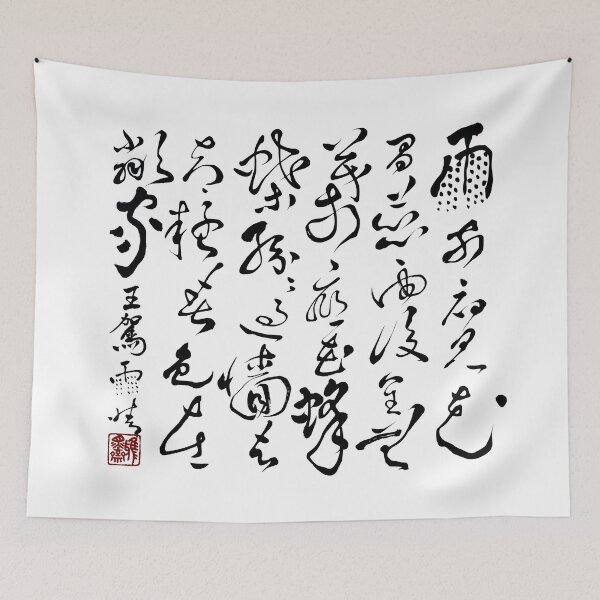 雨前初見花
間蕊雨後全無
葉底花蜂
蝶紛紛過牆去
却疑春色在
鄰家
王駕雨晴